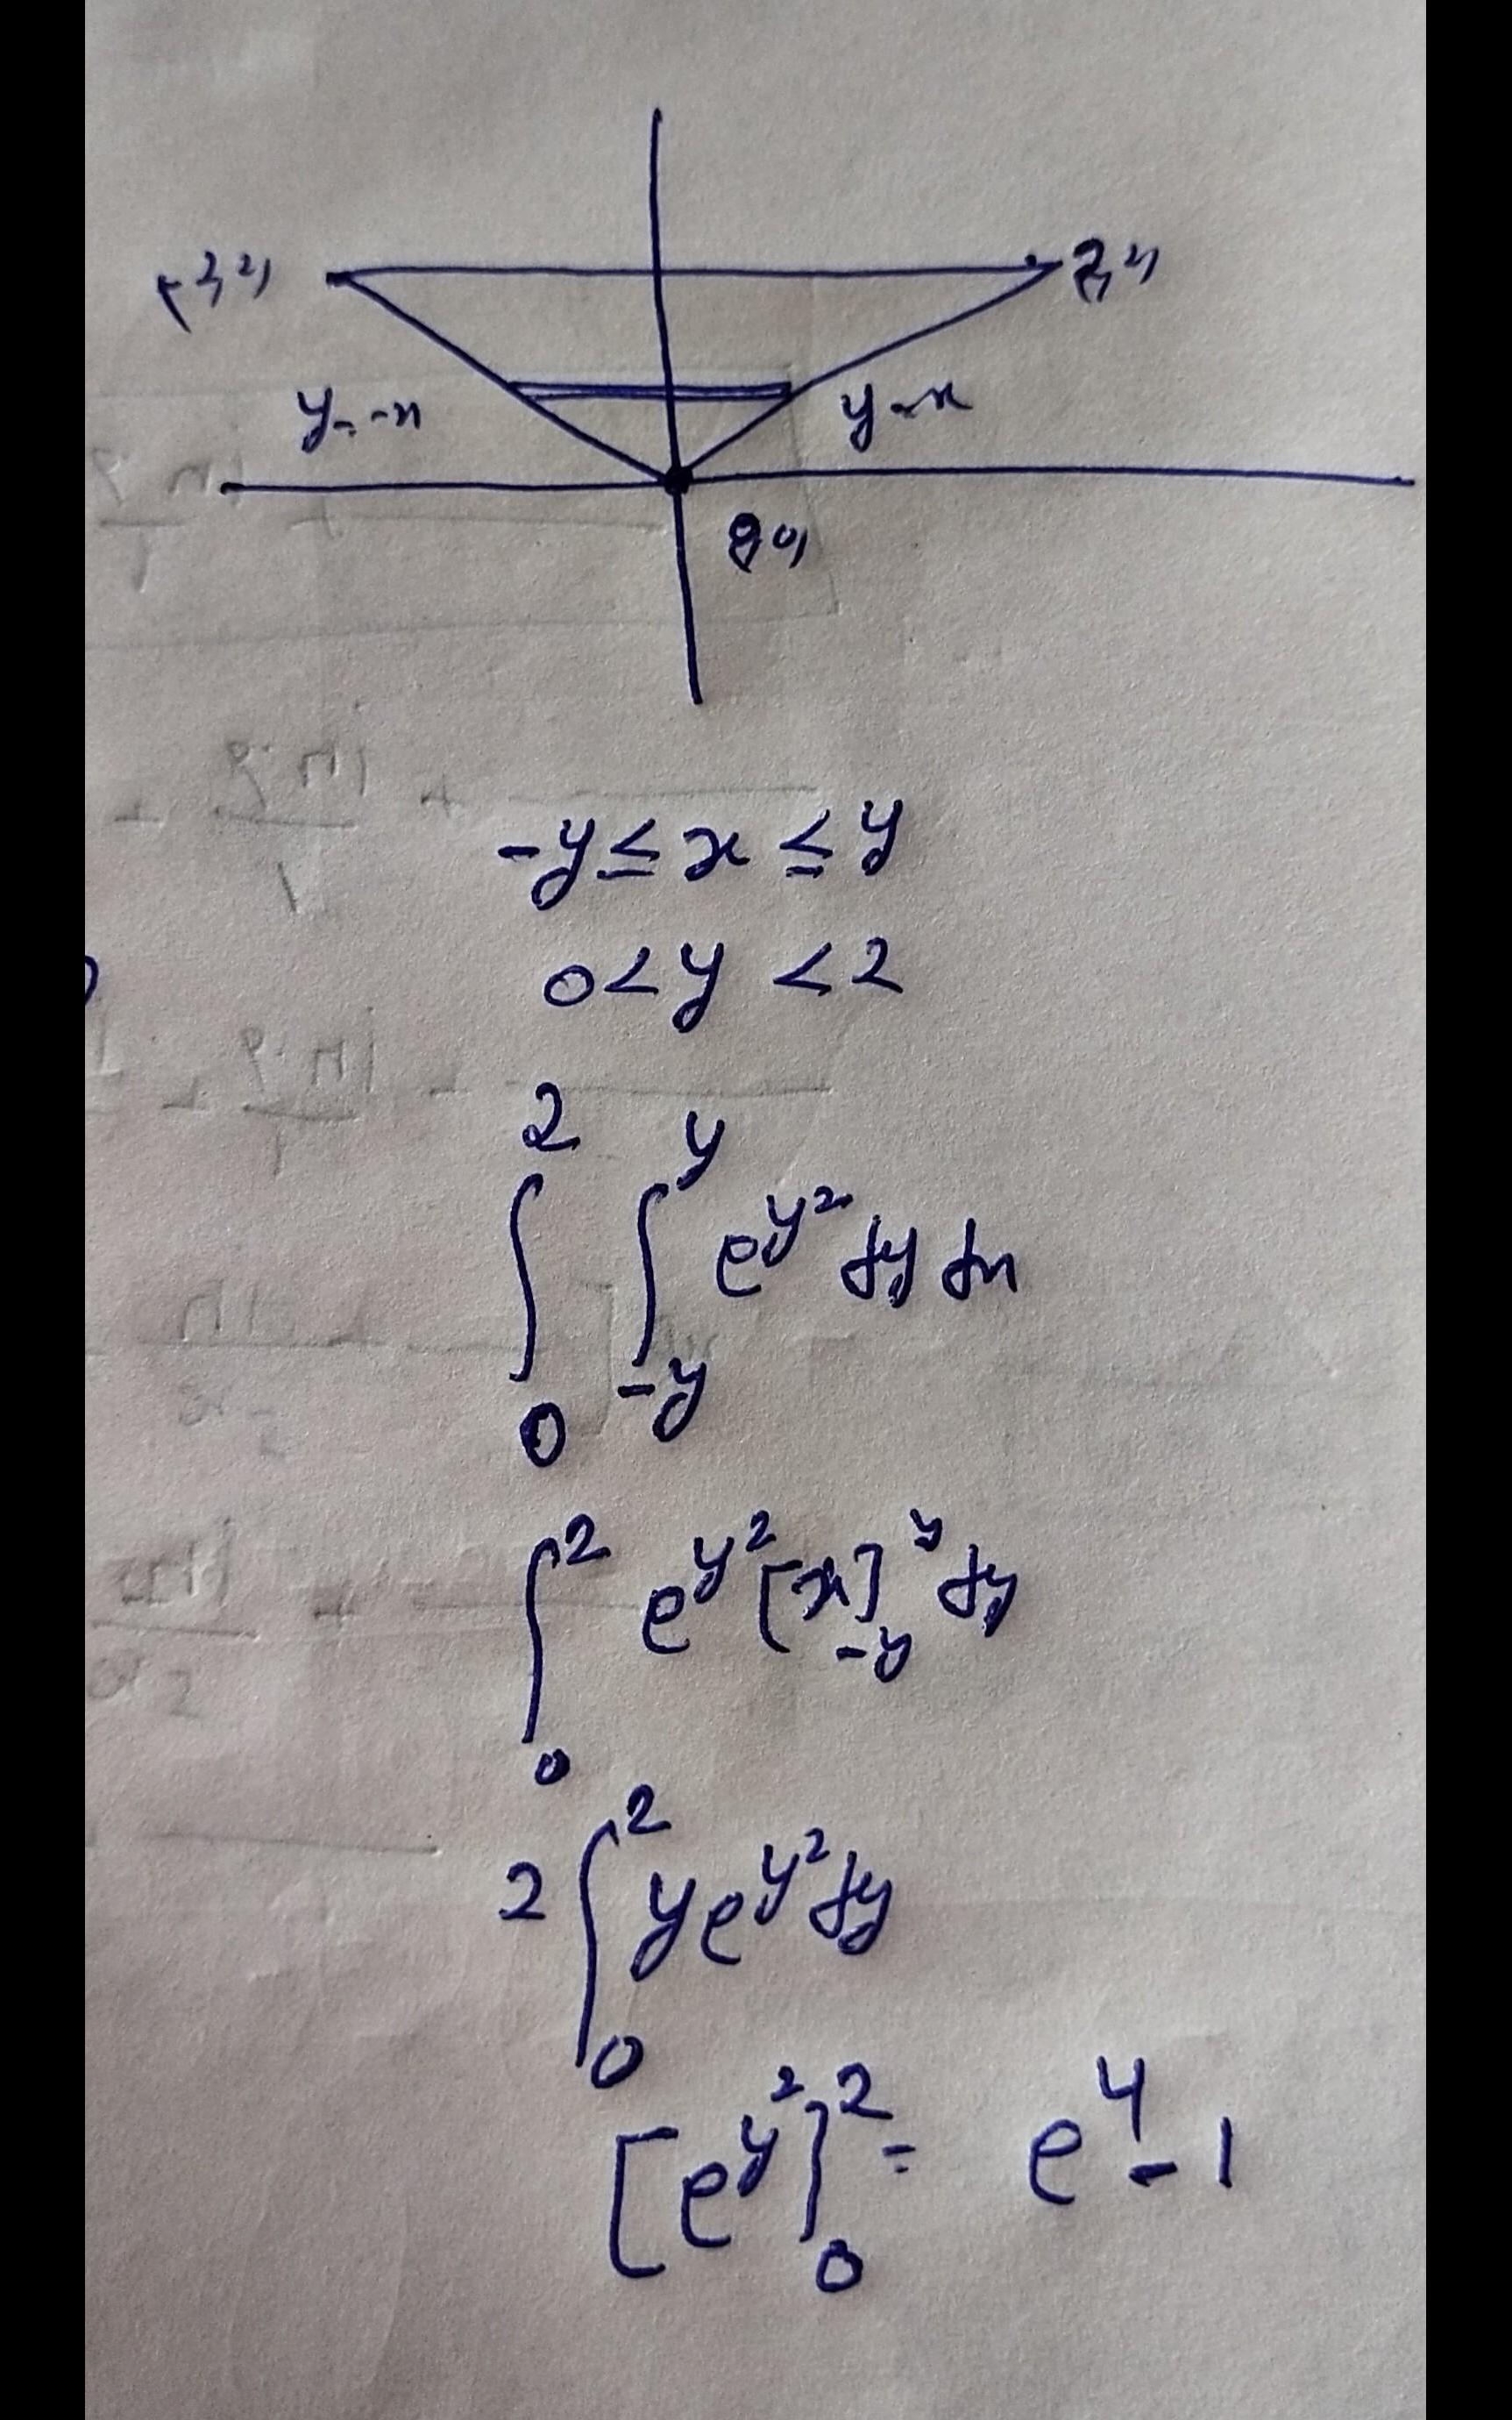 (-2,2) (2,2)
y=-x y=x
(0,0)
-y ≤ x ≤ y
0 < y < 2
∫₀² ∫₋ᵧʸ e^{y²} dy dx
∫₀² e^{y²} [x]₋ᵧʸ dy
2 ∫₀² y e^{y²} dy
[e^{y²}]₀² = e⁴ - 1